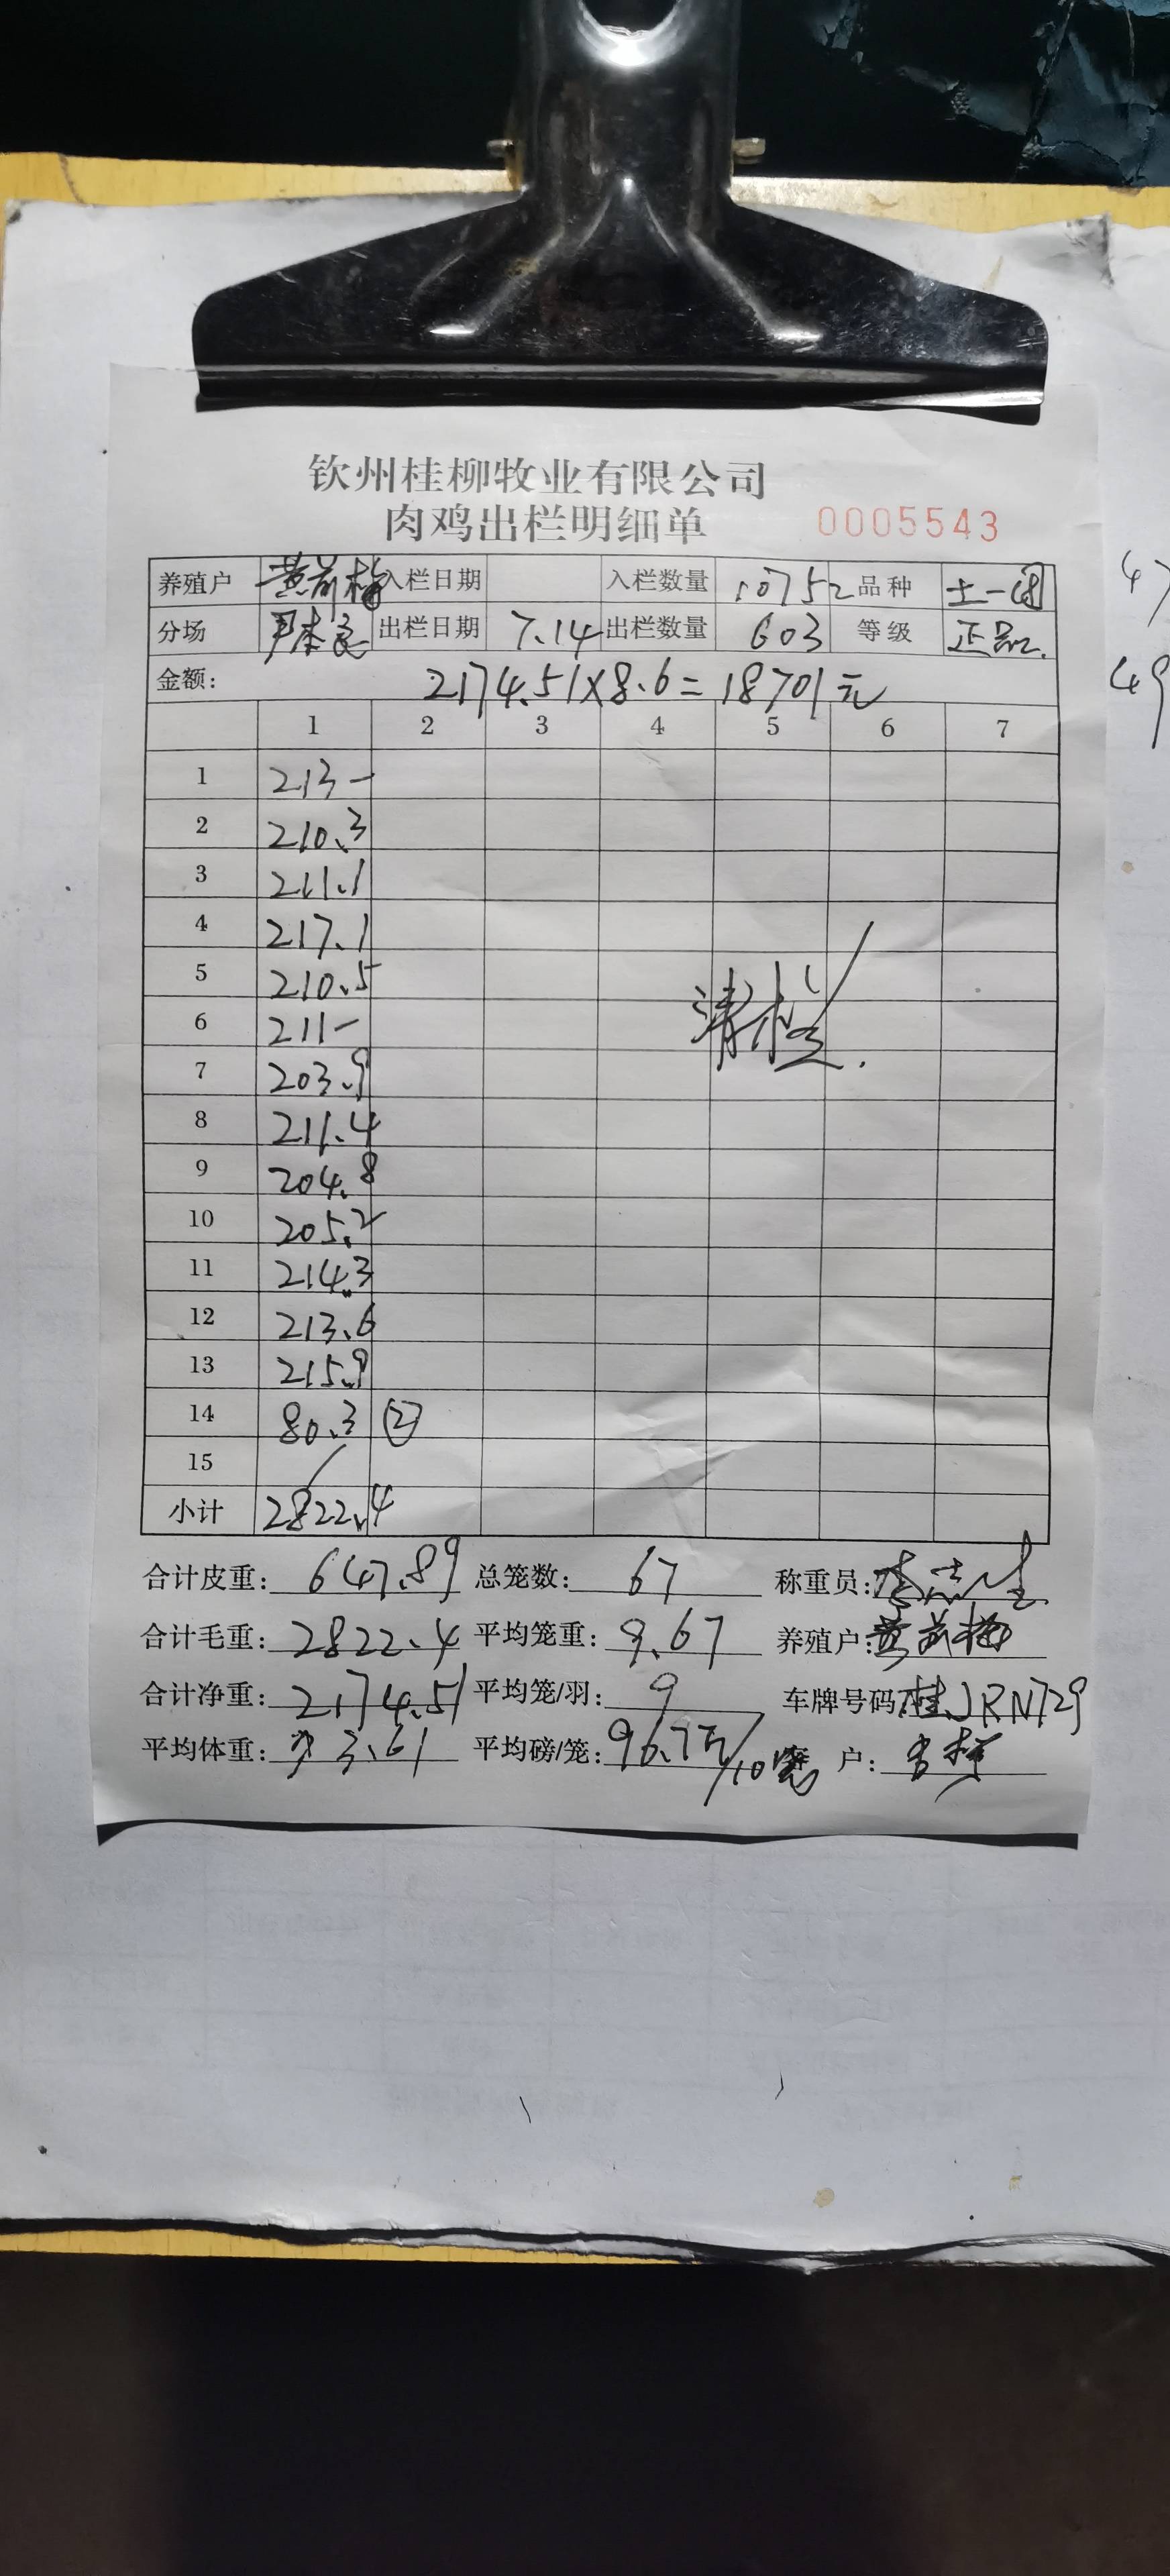 钦州桂柳牧业有限公司
肉鸡出栏明细单 0005543
养殖户 入栏日期 入栏数量 10752 品种 土一
分场 尹本良 出栏日期 7.14 出栏数量 603 等级 正品
金额: 2174.51×8.6=18701元
1 2 3 4 5 6 7
1 213-
2 210.3
3 211.1
4 217.1
5 210.5
6 211-
7 203.9
8 211.4
9 204.8
10 205.2
11 214.3
12 213.6
13 215.9
14 80.3 ②
15
清栏.
小计 2822.4
合计皮重: 647.89 总笼数: 67 称重员:
合计毛重: 2822.4 平均笼重: 9.67 养殖户:
合计净重: 2174.51 平均笼/羽: 9 车牌号码: 桂JRN729
平均体重: 3.61 平均磅/笼: 96.7斤/10笼 户:
47
49